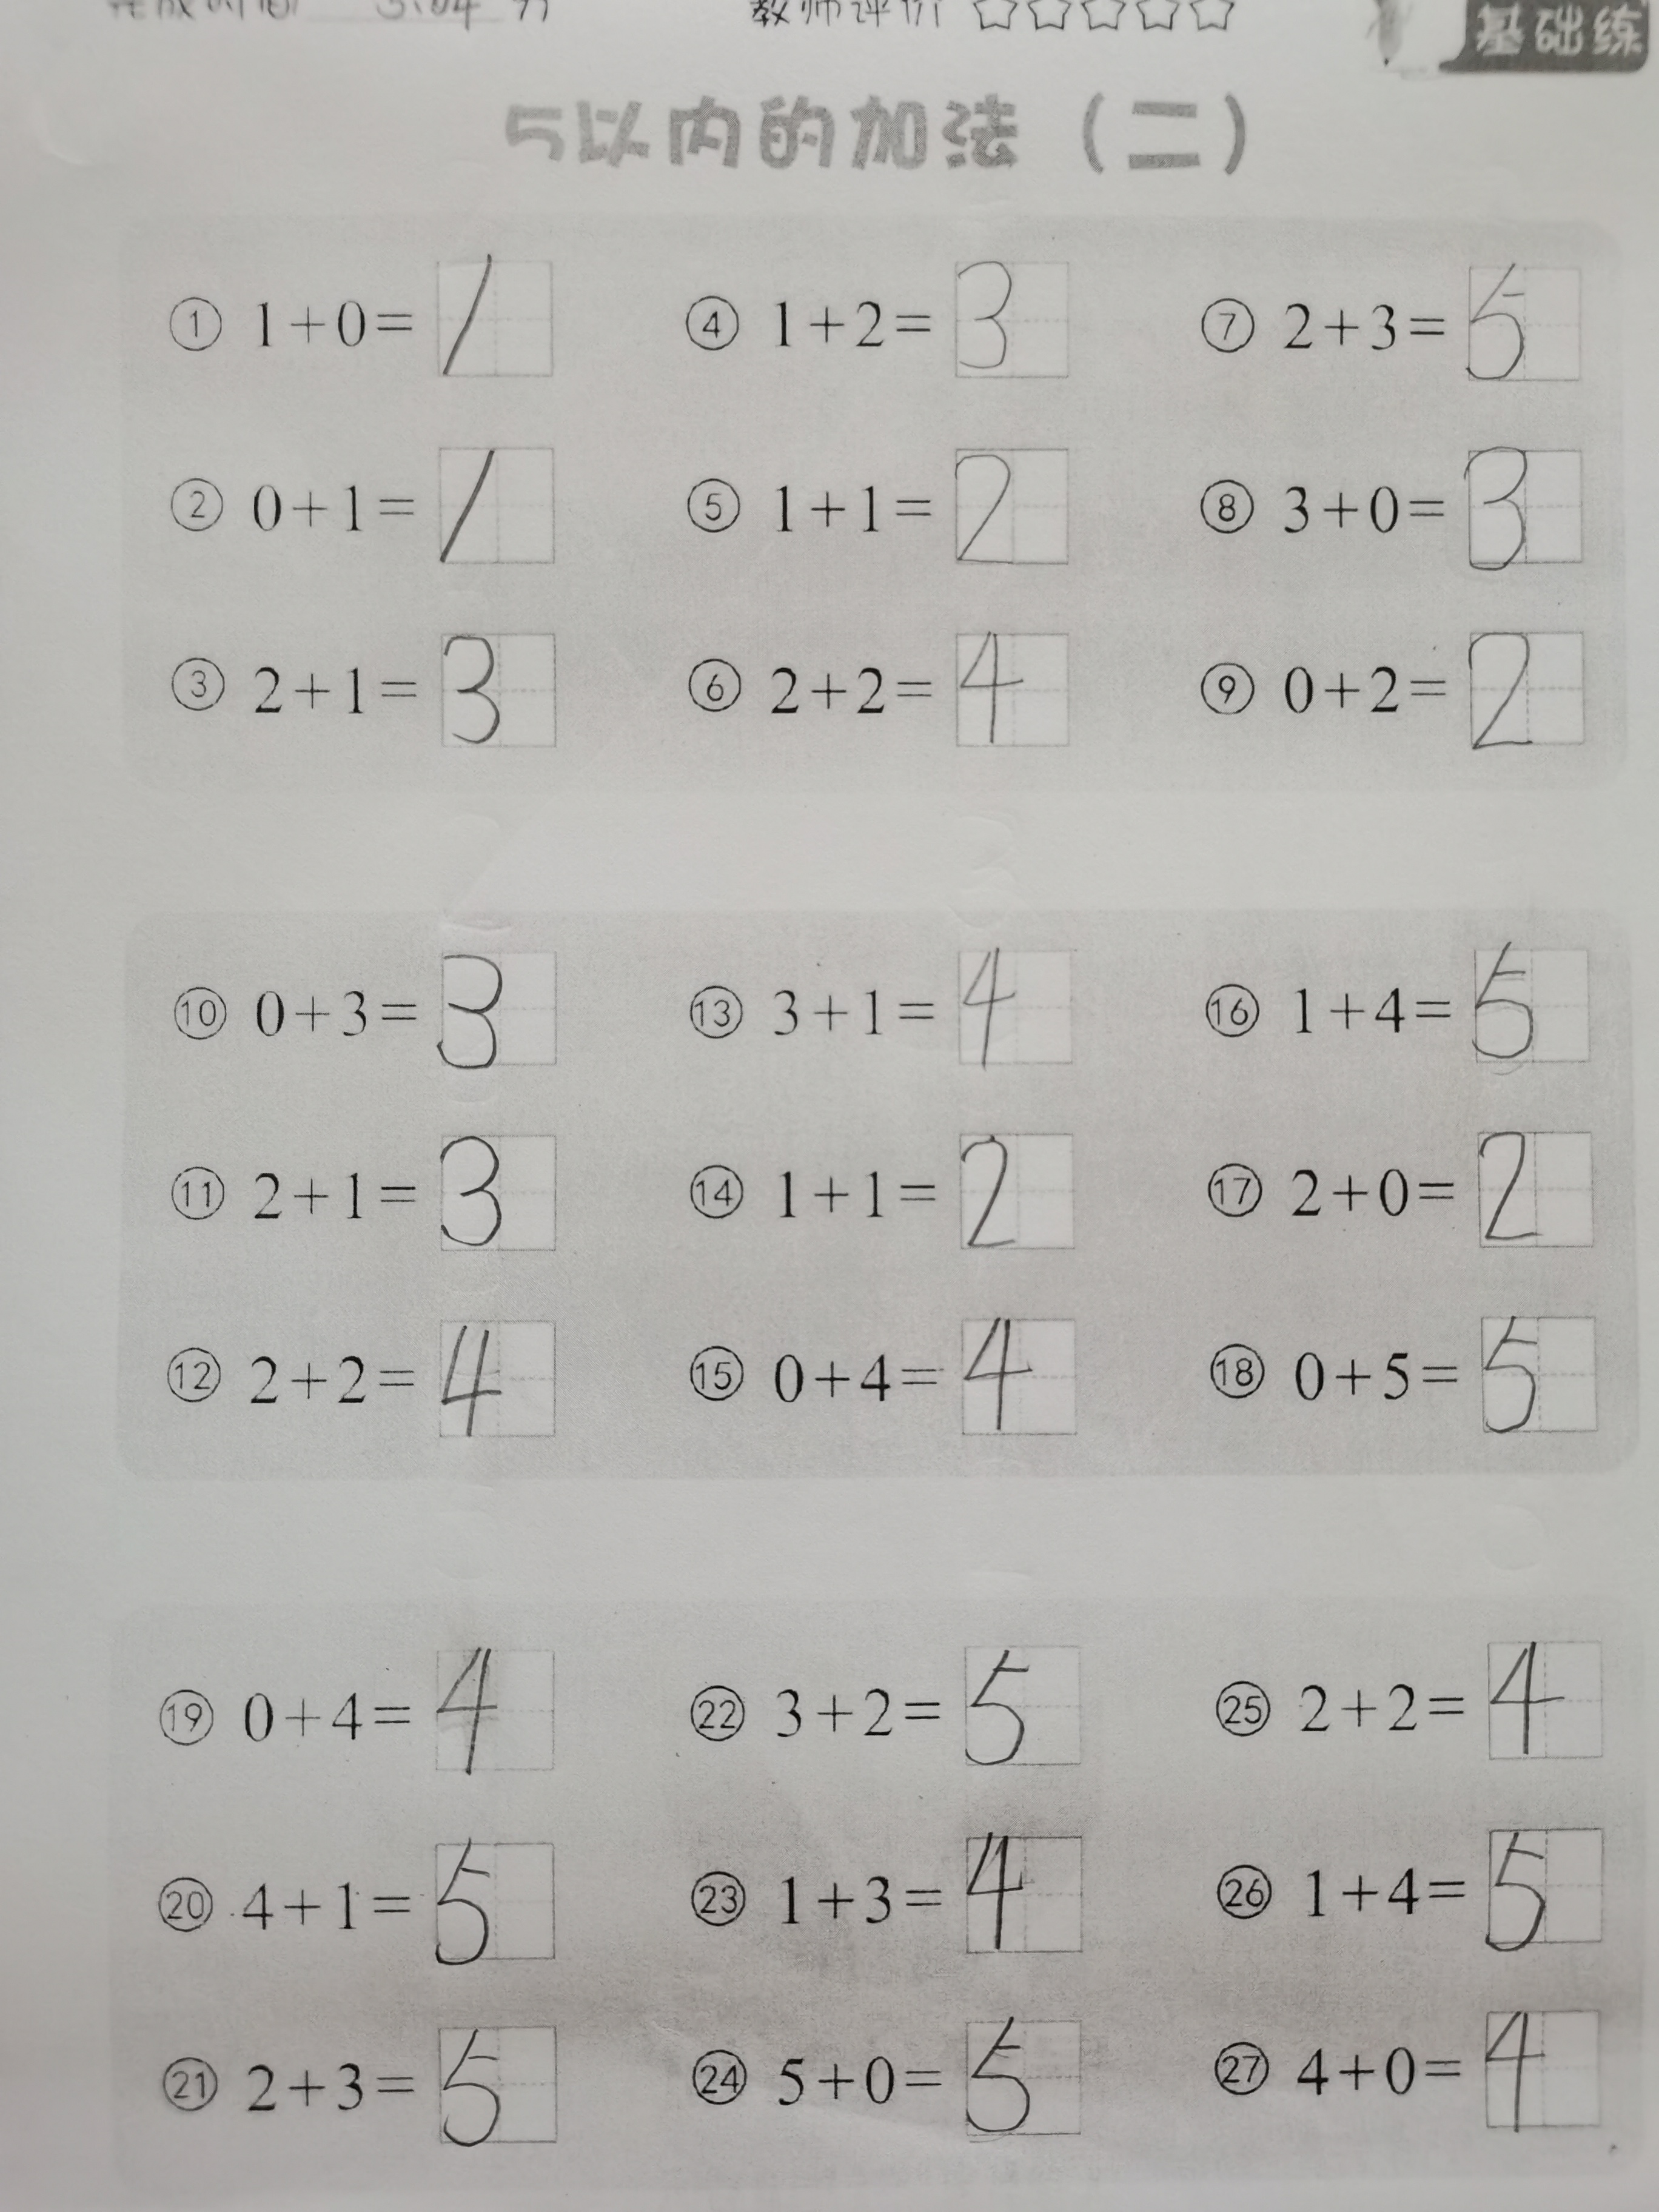 教师评价 ☆☆☆☆☆
基础练
5以内的加法（二）
① 1+0=1 ④ 1+2=3 ⑦ 2+3=5
② 0+1=1 ⑤ 1+1=2 ⑧ 3+0=3
③ 2+1=3 ⑥ 2+2=4 ⑨ 0+2=2
⑩ 0+3=3 ⑬ 3+1=4 ⑯ 1+4=5
⑪ 2+1=3 ⑭ 1+1=2 ⑰ 2+0=2
⑫ 2+2=4 ⑮ 0+4=4 ⑱ 0+5=5
⑲ 0+4=4 ㉒ 3+2=5 ㉕ 2+2=4
⑳ 4+1=5 ㉓ 1+3=4 ㉖ 1+4=5
㉑ 2+3=5 ㉔ 5+0=5 ㉗ 4+0=4